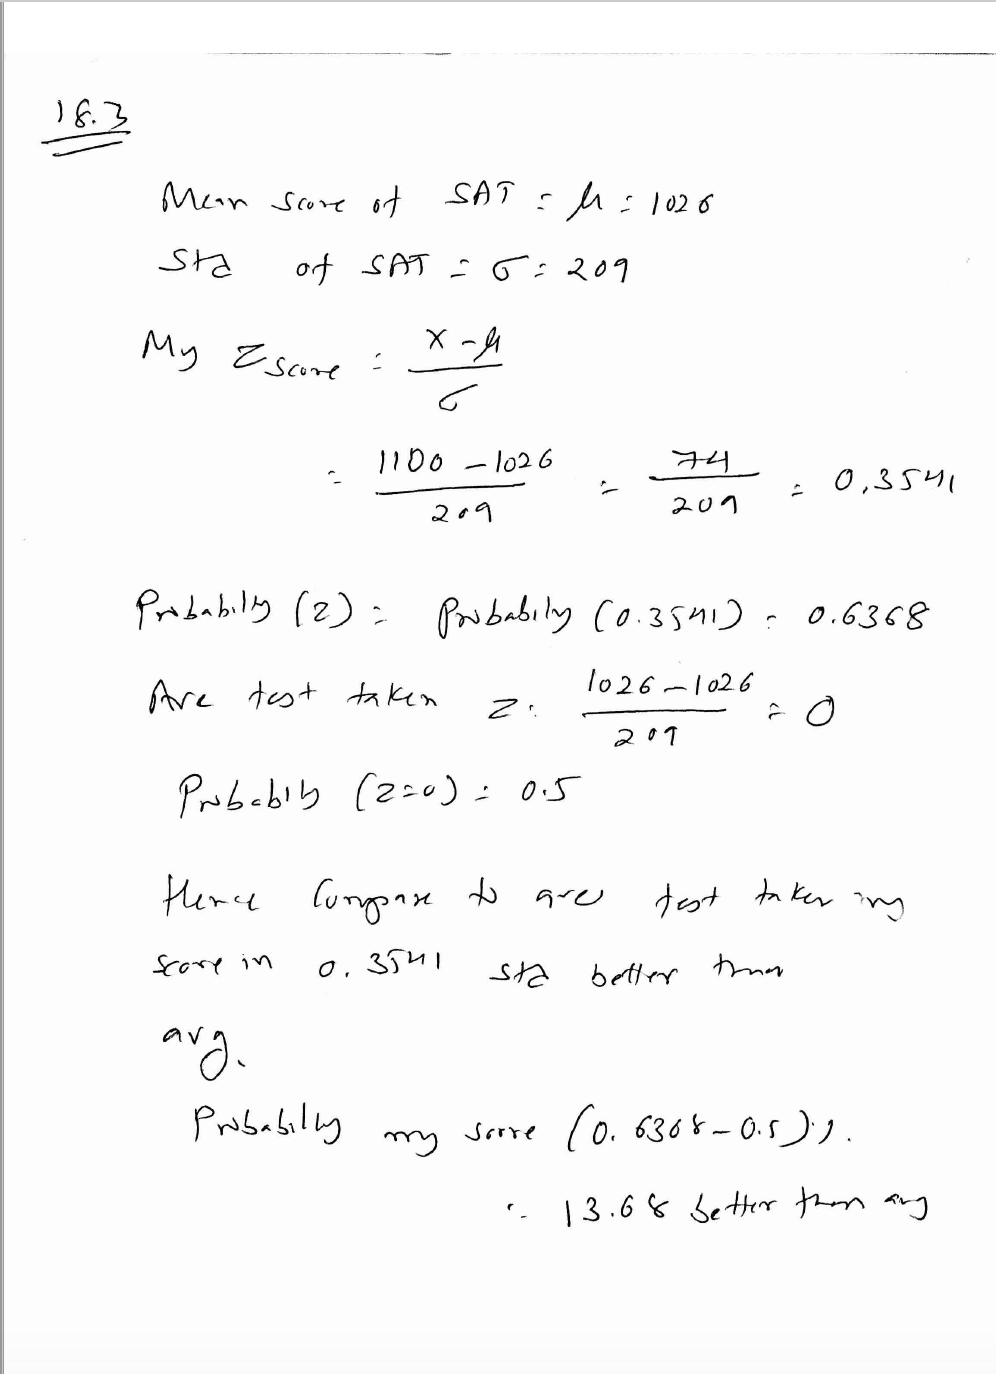 18.3
Mean score of SAT = μ = 1026
Std of SAT = σ = 209
My Z score = x - μ
σ
= 1100 - 1026 = 74 = 0.3541
209 209
Probability (z) = Probability (0.3541) = 0.6368
Ave test taken z = 1026 - 1026 = 0
209
Probability (z=0) = 0.5
Hence Compare to test taker my
score in 0.3541 std better than
avg.
Probability my score (0.6368 - 0.5)
= 13.68 better than avg